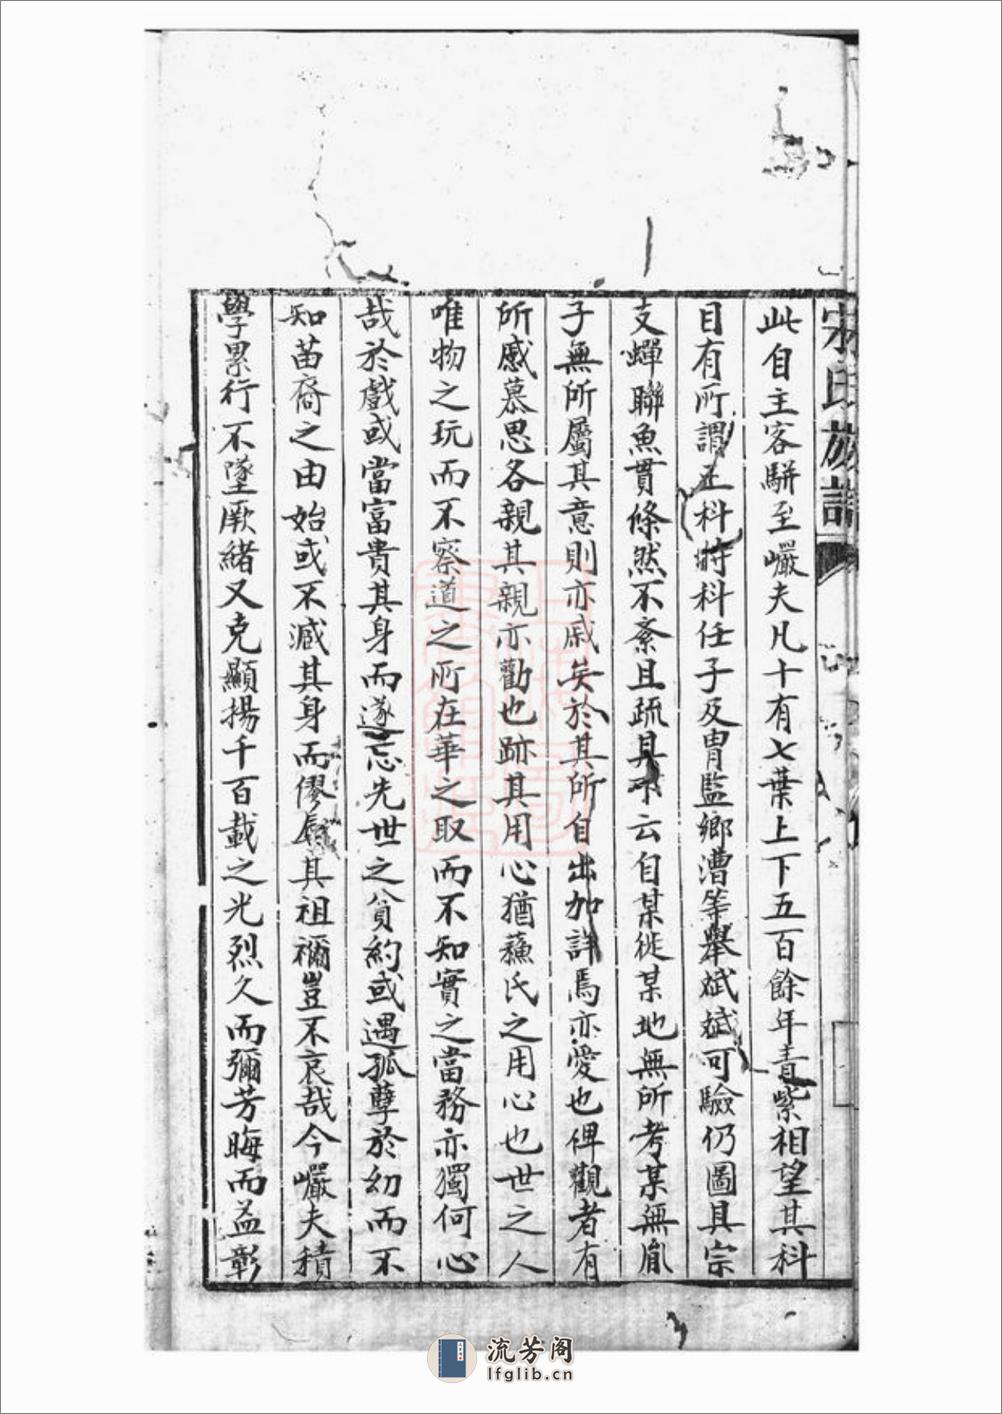 宋氏族譜
此自主客駢至巖夫凡十有七葉上下五百餘年青紫相望其科
目有所謂正科時科任子及胄監鄉漕等舉斌斌可驗仍圖具宗
支蟬聯魚貫條然不紊且疏其下云自某徙某地無所考某無胤
子無所屬其意則亦戚矣於其所自出加詳焉亦愛也俾觀者有
所感慕思各親其親亦勸也跡其用心猶蘓氏之用心也世之人
唯物之玩而不察道之所在華之取而不知實之當務亦獨何心
哉於戲或當富貴其身而遂忘先世之貧約或遇孤孽於幼而不
知苗裔之由始或不減其身而僇辱其祖禰豈不哀哉今巖夫積
學累行不墜厥緒又克顯揚千百載之光烈久而彌芳晦而益彰
流芳阁
lfglib.cn